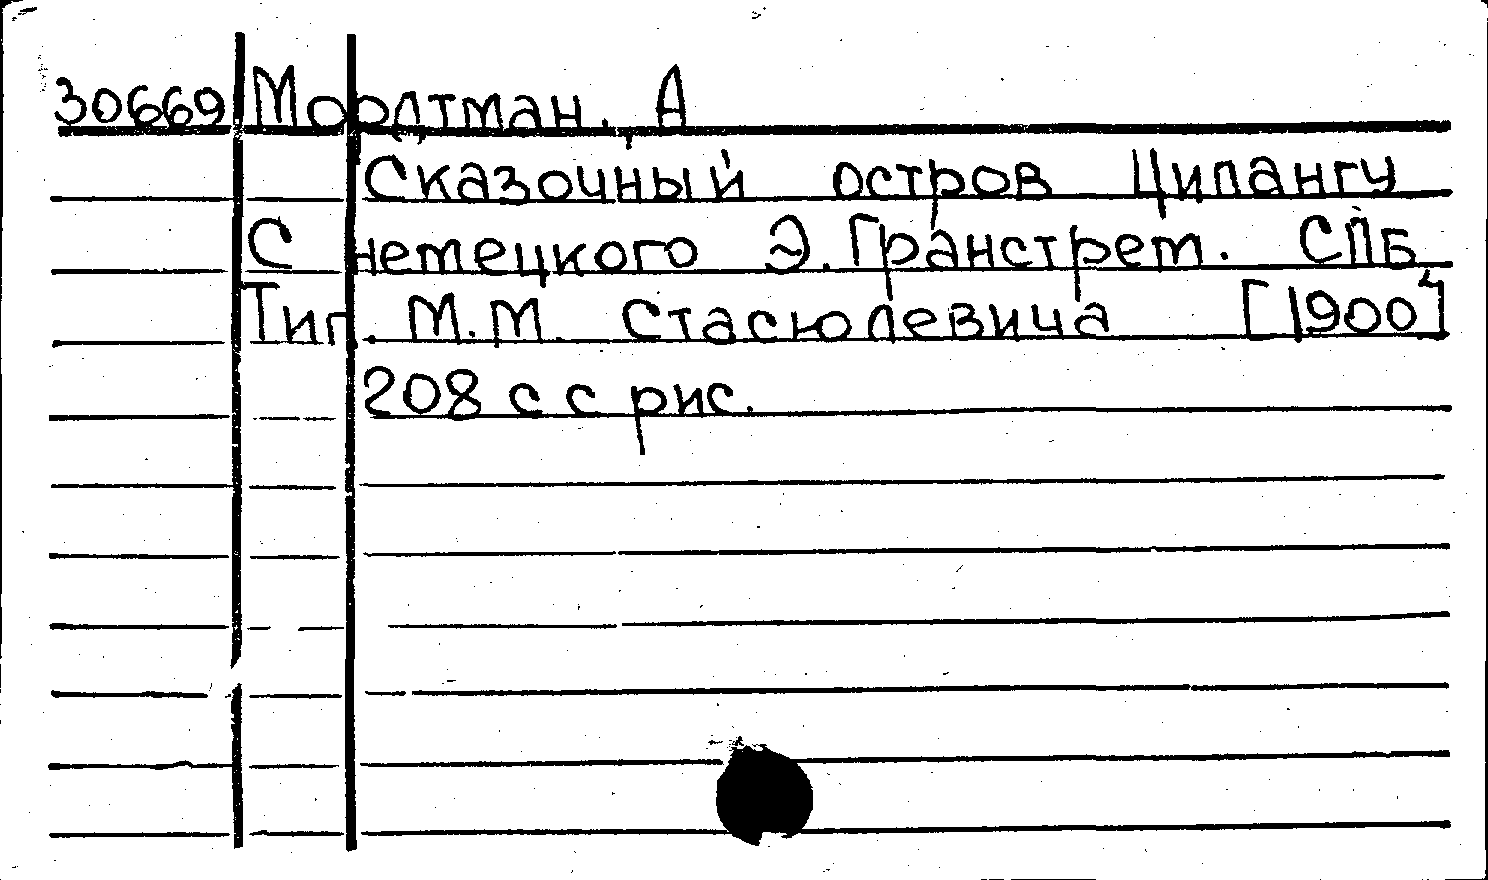 30669 Мордтман, А
Сказочный остров Ципангу
С немецкого Э. Гранстрем. СПБ,
Тип. М.М. Стасюлевича [1900]
208 с с рис.